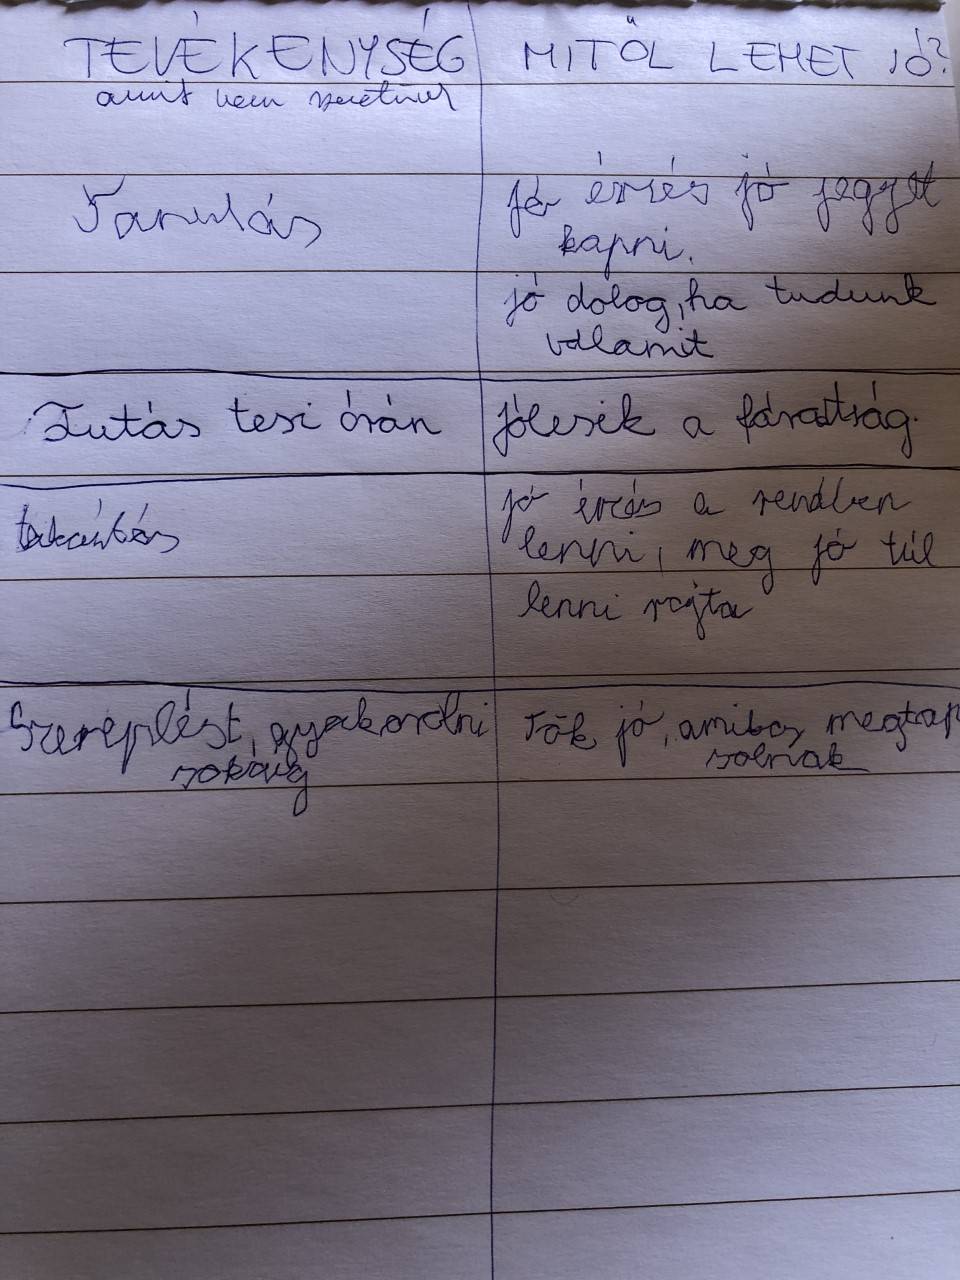 TEVÉKENYSÉG
amit nem szeretünk
MITŐL LEHET JÓ?
Tanulás
jó érzés jó jegyet
kapni.
jó dolog, ha tudunk
valamit
Futás tesi órán
jólesik a fáradtság.
takarítás
jó érzés a rendben
lenni, meg jó túl
lenni rajta
Szereplést, gyakorolni
sokáig
Tök jó, amikor megtap
solnak